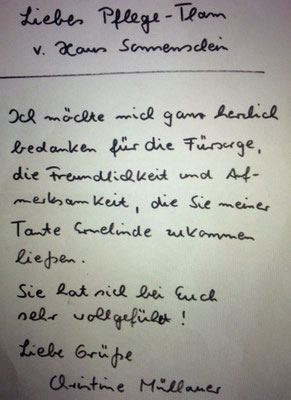 Liebes Pflege-Team
v. Haus Sonnenschein
Ich möchte mich ganz herzlich
bedanken für die Fürsorge,
die Freundlichkeit und Auf-
merksamkeit, die Sie meiner
Tante Ermelinde zukommen
ließen.
Sie hat sich bei Euch
sehr wohlgefühlt!
Liebe Grüße
Christine Müllauer